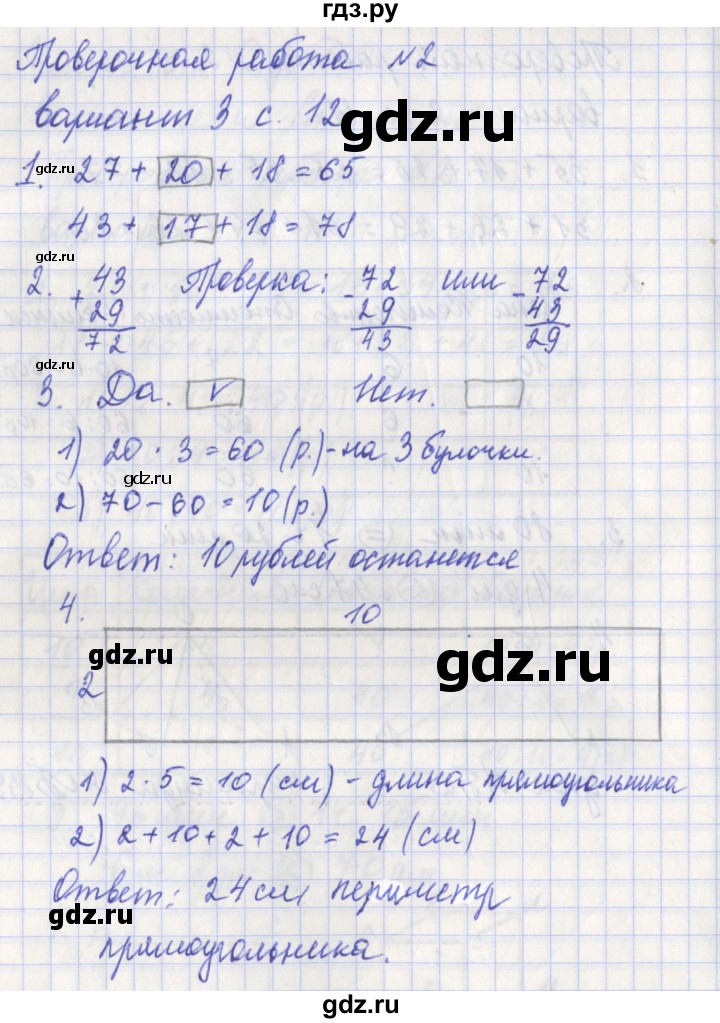 гдз.ру
Проверочная работа №2
вариант 3 с. 12
gdz.ru
1. 27 + 20 + 18 = 65
43 + 17 + 18 = 78
gdz.ru
2. + 43 Проверка: - 72 или - 72
29 29 43
72 43 29
gdz.ru
3. Да. v Нет.
1) 20 · 3 = 60 (р.) - на 3 булочки.
gdz.ru
2) 70 - 60 = 10 (р.)
Ответ: 10 рублей останется
gdz.ru
4. 10
gdz.ru gdz.ru
2
1) 2 · 5 = 10 (см) - длина прямоугольника
2) 2 + 10 + 2 + 10 = 24 (см)
gdz.ru
Ответ: 24 см периметр
gdz.ru
прямоугольника.
gdz.ru